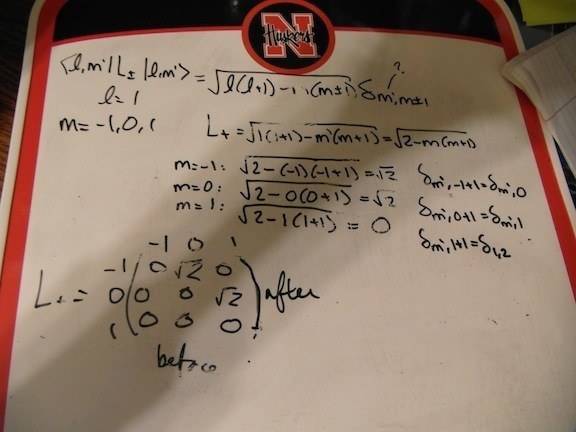 N
Huskers
⟨l,m'|L± |l,m'⟩ = √l(l+1) - (m±1) δm',m±1
?
l = 1
m = -1,0,1
L+ = √1(1+1)-m(m+1) = √2-m(m+1)
m=-1: √2-(-1)(-1+1) = √2 δm',-1+1 = δm',0
m=0: √2-0(0+1) = √2 δm',0+1 = δm',1
m=1: √2-1(1+1) = 0 δm',1+1 = δ1,2
-1 0 1
-1 0 √2 0
L+ = 0 0 0 √2 after
1 0 0 0